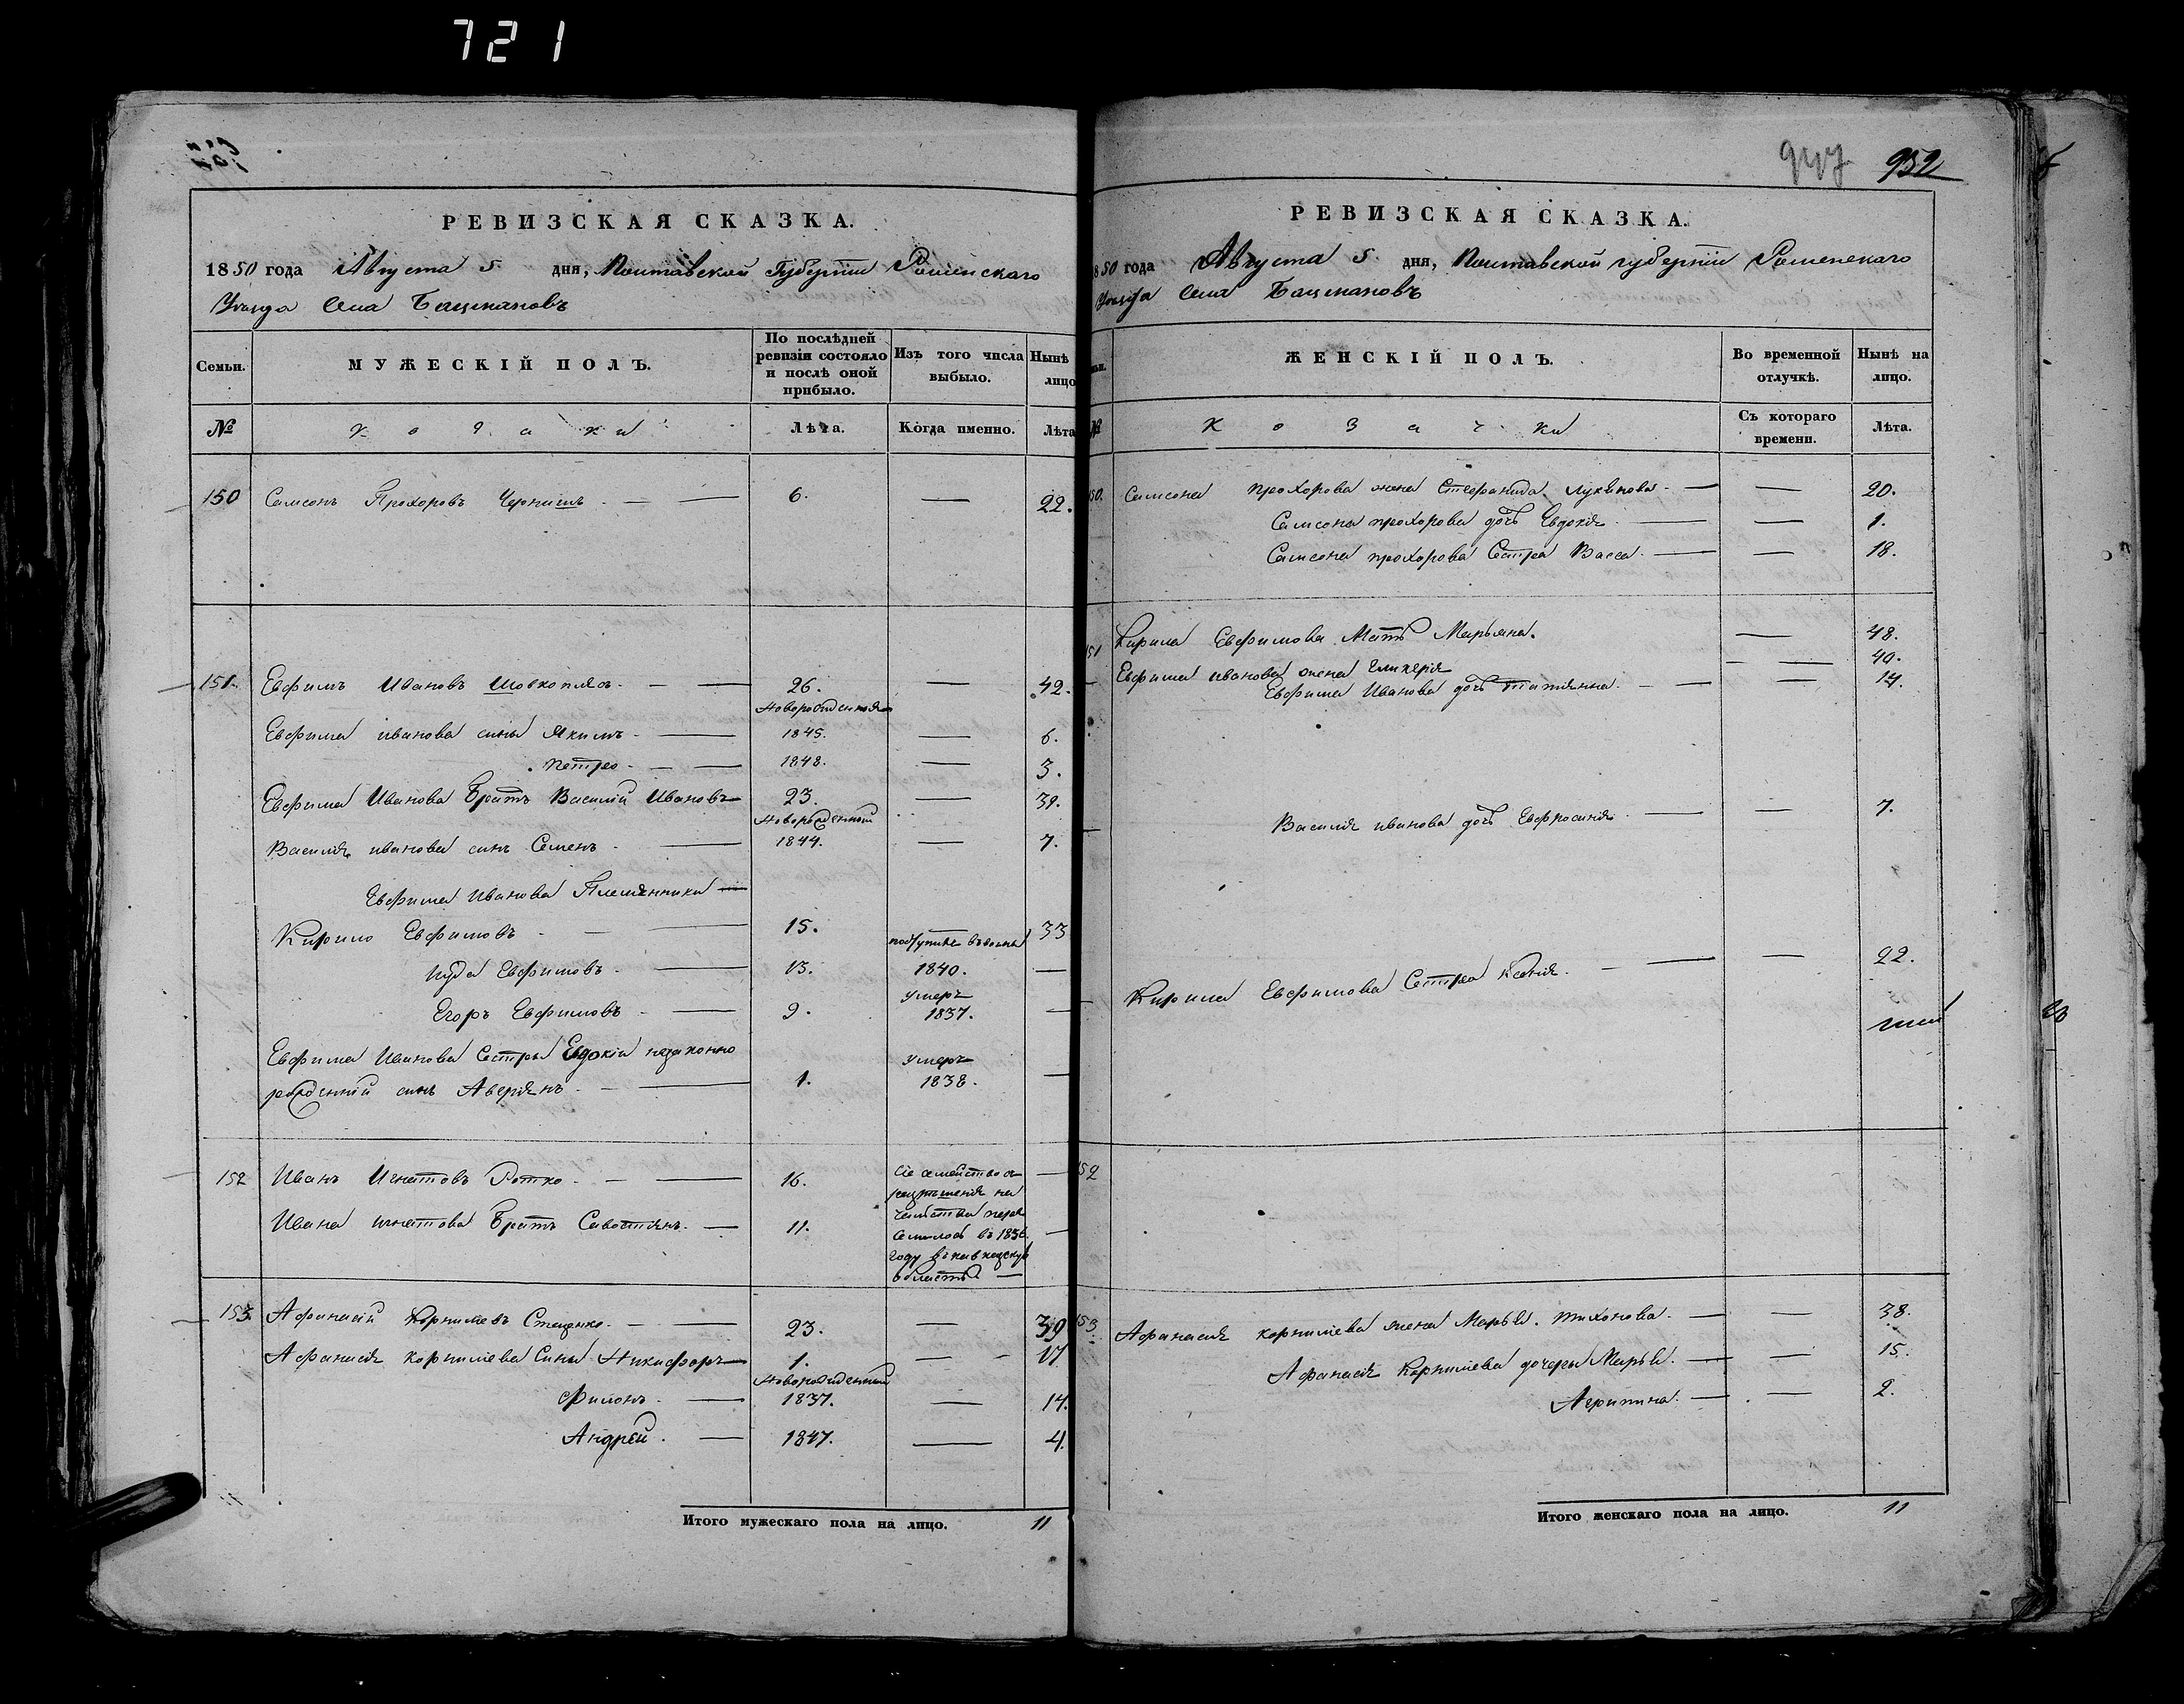 721
РЕВИЗСКАЯ СКАЗКА.
1850 года Августа 5 дня, Полтавской Губерніи Роменскаго
Уезда Села Бацмановъ
Семьи.
МУЖЕСКІЙ ПОЛЪ.
По послѣдней ревизіи состояло и послѣ оной прибыло.
Изъ того числа выбыло.
Нынѣ лицо
№
Козаки
Лѣта.
Когда именно.
Лѣта
150 Самсонъ Прохоровъ Чернишъ 6. 22.
151. Евфимъ Ивановъ Шовкоплясъ 26. 42.
Новорожденныя
Евфима иванова сыны Якимъ 1845. 6.
Петро 1848. 3.
Евфима Иванова Братъ Василій Ивановъ 23. 39.
Новорожденный
Василія иванова сынъ Семенъ 1844. 7.
Евфима Иванова Племянники
Кирило Евфимовъ 15. 33
Иуда Евфимовъ 13. 1840.
Егоръ Евфимовъ 9. Умеръ 1837.
Евфима Иванова Сестры Евдокіи незаконно
рожденний сынъ Аверіянъ 1. Умеръ 1838.
152 Иванъ Игнатовъ Ротко 16.
Ивана игнатова Братъ Савостіянъ 11.
Сіе семейство съ
разрѣшенія на
чальства пере
селилось въ 1836
году въ кавказскую
область
153. Афанасій Корнилевъ Стаценко 23. 39
Афанасія корнилева Сыны Никифоръ 1. 17
Новорожденный
Филонъ 1837. 14.
Андрей 1847. 4.
Итого мужескаго пола на лицо. 11
947 952
РЕВИЗСКАЯ СКАЗКА.
850 года Августа 5 дня, Полтавской губерніи Роменскаго
Уезда Села Бацмановъ
ЖЕНСКІЙ ПОЛЪ.
Во временной отлучкѣ.
Нынѣ на лицо.
№
Козачки
Съ котораго времени.
Лѣта.
150. Самсона прохорова жена Стефанида Лукьянова 20.
Самсона прохорова дочь Евдокія 1.
Самсона прохорова Сестра Васса 18.
151 Кирила Евфимова Мать Марьяна. 48.
Евфима иванова жена Гликерія 40.
Евфима Иванова дочь Татіянна 14.
Василія иванова дочь Евфросинія 7.
Кирила Евфимова Сестра Ксенія 22.
152
153. Афанасія корнилева жена Марья тихонова 38.
Афанасія Корнилева дочеры Марья 15.
Агрипина 2.
Итого женскаго пола на лицо. 11